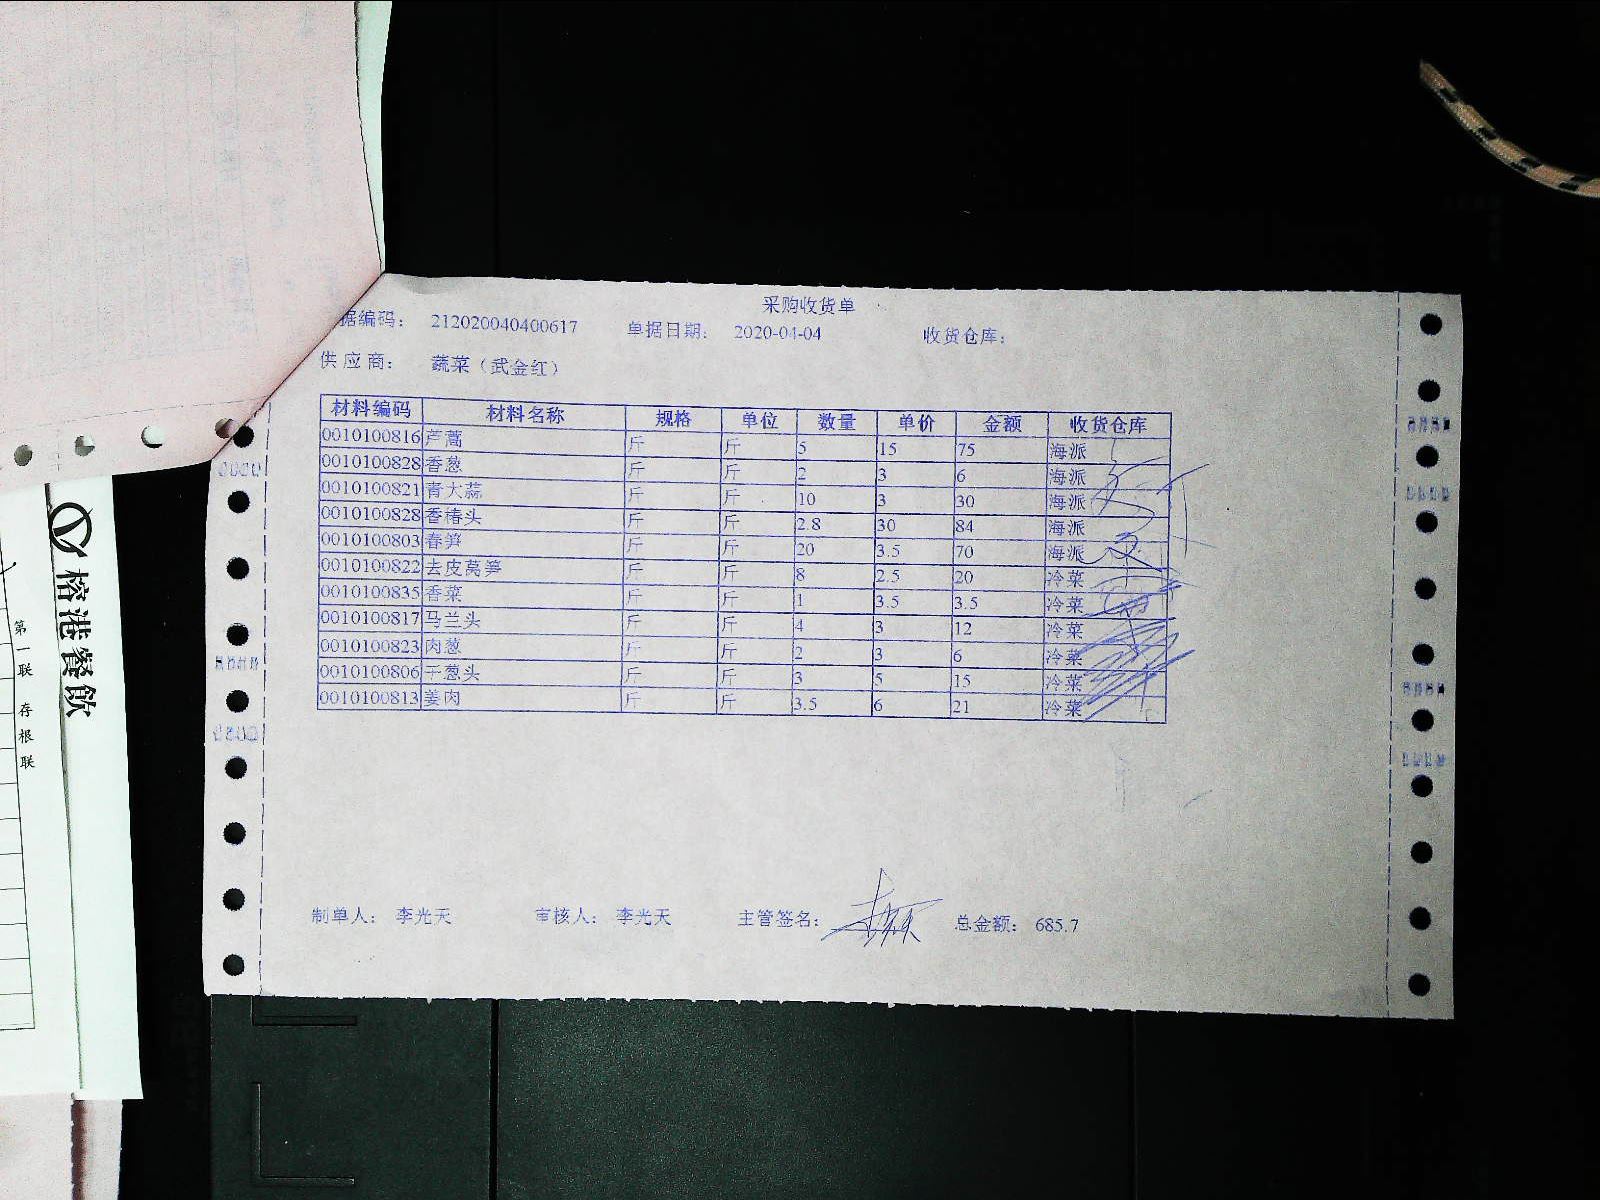 采购收货单
据编码： 212020040400617 单据日期： 2020-04-04 收货仓库：
供应商： 蔬菜（武金红）
材料编码 材料名称 规格 单位 数量 单价 金额 收货仓库
0010100816 芦蒿 斤 斤 5 15 75 海派
0010100828 香葱 斤 斤 2 3 6 海派
0010100821 青大蒜 斤 斤 10 3 30 海派
0010100828 香椿头 斤 斤 2.8 30 84 海派
0010100803 春笋 斤 斤 20 3.5 70 海派
0010100822 去皮莴笋 斤 斤 8 2.5 20 冷菜
0010100835 香菜 斤 斤 1 3.5 3.5 冷菜
0010100817 马兰头 斤 斤 4 3 12 冷菜
0010100823 肉葱 斤 斤 2 3 6 冷菜
0010100806 干葱头 斤 斤 3 5 15 冷菜
0010100813 姜肉 斤 斤 3.5 6 21 冷菜
制单人： 李光天 审核人： 李光天 主管签名： 总金额： 685.7
榕港餐飲
第一联 存根联